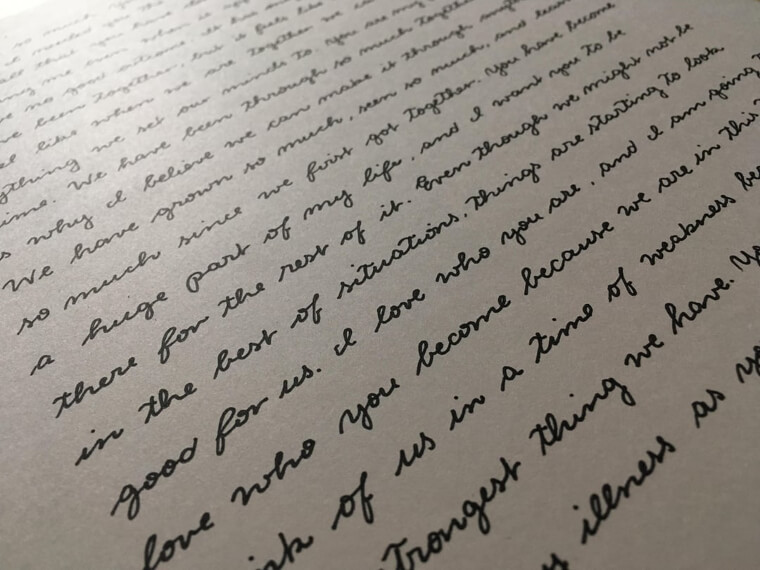 so much
needed you
all this you have
me even when is
no good outcome. It has
have been together, but it feels like
feel like when we are together we can
anything we set our minds to. You are my
time. We have been through so much together
is why I believe we can make it through
We have grown so much, seen so much, and
so much since we first got together. You have become
a huge part of my life, and I want you to be
there for the rest of it. Even though we might not be
in the best of situations, things are starting to look
good for us. I love who you are, and I am going
love who you become because we are in this
of us in a time of weakness
strongest thing we have.
illness as